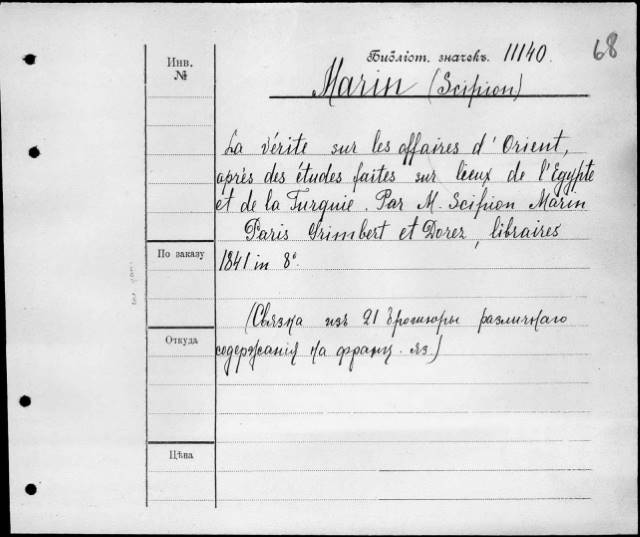 68
Инв.
№
Библіот. значекъ. 11140.
Marin (Scipion)
La vérite sur les affaires d'Orient,
après des études faites sur lieux de l'Egypte
et de la Turquie. Par M. Scipion Marin
Paris Grimbert et Dorez, libraires
По заказу
1841 in 8°.
(Связка изъ 21 брошюры различнаго
Откуда
содержанія на франц. яз.)
Цѣна